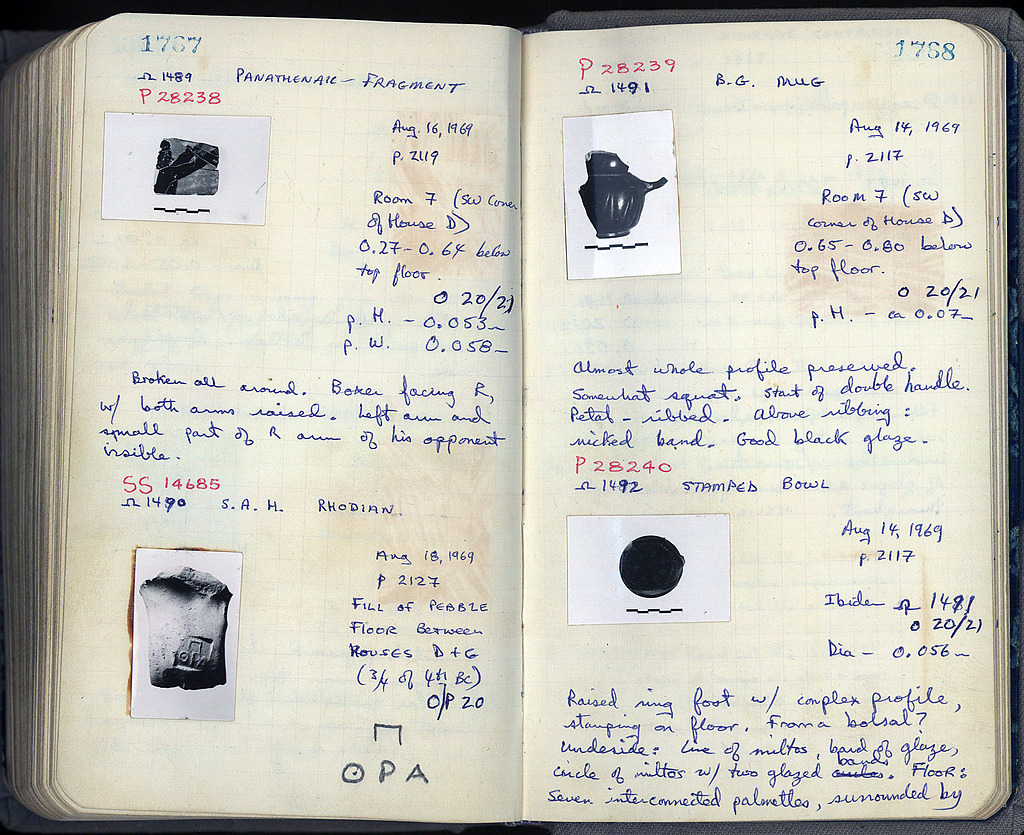 1767
Ω 1489 PANATHENAIC - FRAGMENT
P 28238
Aug. 16, 1969
p. 2119
Room 7 (SW corner
of House D)
0.27 - 0.64 below
top floor.
O 20/21
p. H. - 0.053m
p. W. 0.058m
Broken all around. Boxer facing R,
w/ both arms raised. Left arm and
small part of R arm of his opponent
visible.
SS 14685
Ω 1490 S.A.H. RHODIAN.
Aug 18, 1969
p 2127
FILL OF PEBBLE
FLOOR BETWEEN
HOUSES D + G
(3/4 of 4th BC)
O/P 20
Π
ΟΡΑ
1768
P 28239
Ω 1491 B.G. MUG
Aug 14, 1969
p. 2117
Room 7 (SW
corner of House D)
0.65 - 0.80 below
top floor.
O 20/21
p. H. - ca 0.07m
Almost whole profile preserved.
Somewhat squat. Start of double handle.
Petal - ribbed. Above ribbing:
nicked band. Good black glaze.
P 28240
Ω 1492 STAMPED BOWL
Aug 14, 1969
p. 2117
Ibidem Ω 1491
O 20/21
Dia - 0.056m
Raised ring foot w/ complex profile,
stamping on floor. From a bolsal?
Underside: Line of miltos, band of glaze,
circle of miltos w/ two glazed bands. FLOOR:
Seven interconnected palmettes, surrounded by